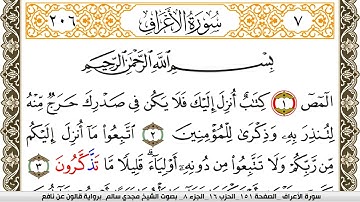 ٧ سُورَةُ الأَعْرَافِ ٢٠٦
بِسْمِ اللَّهِ الرَّحْمَٰنِ الرَّحِيمِ
الٓمٓصٓ ١ كِتَٰبٌ أُنزِلَ إِلَيْكَ فَلَا يَكُن فِى صَدْرِكَ حَرَجٌ مِّنْهُ
لِتُنذِرَ بِهِۦ وَذِكْرَىٰ لِلْمُؤْمِنِينَ ٢ اَتَّبِعُوا مَا أُنزِلَ إِلَيْكُم
مِّن رَّبِّكُمْ وَلَا تَتَّبِعُوا مِن دُونِهِۦ أَوْلِيَآءَ قَلِيلًا مَّا تَذَّكَّرُونَ ٣
سورة الأعراف _ الصفحة ١٥١ _ الحزب ١٦ _ الجزء ٨ _ بصوت الشيخ مجدي سالم _ برواية قالون عن نافع